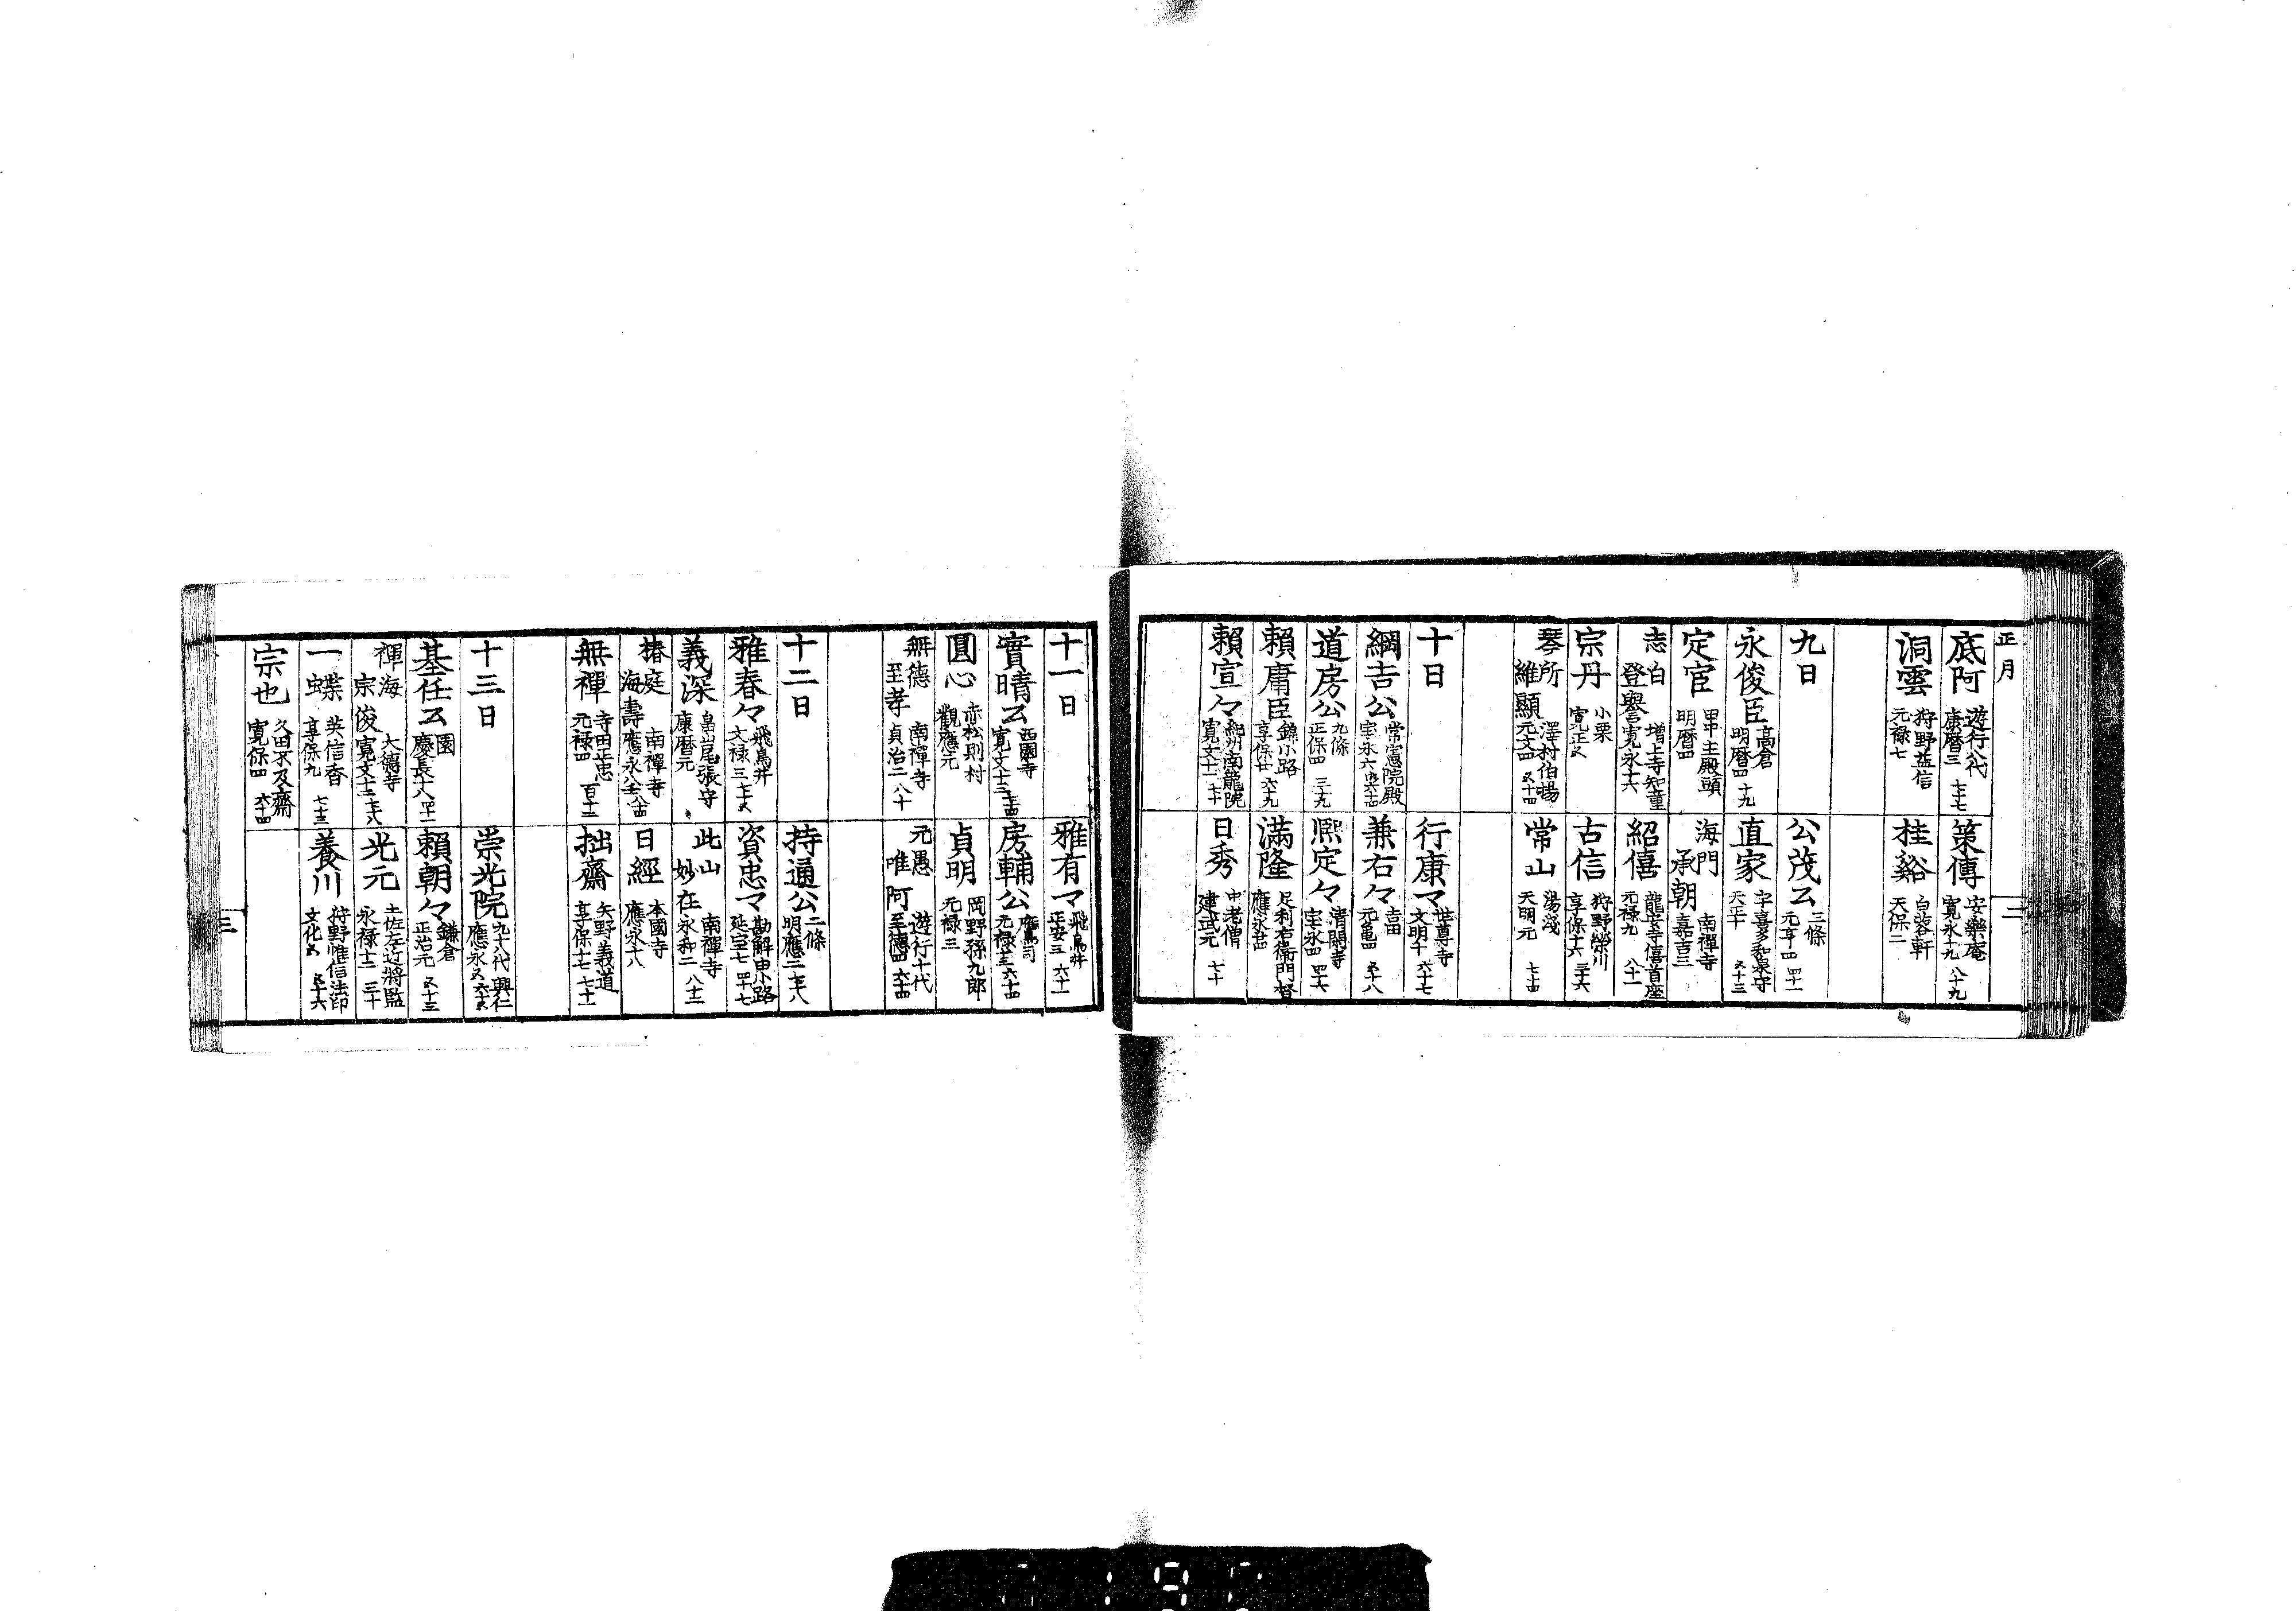 正月
底阿 遊行八代 康暦三 七十七
策傳 安樂庵 寛永十九 八十九
洞雲 狩野益信 元禄七
桂谿 白蓉軒 天保二
九日
公茂公 三條 元亨四 四十一
永俊臣 高倉 明暦四 十九
直家 宇喜多和泉守 天正十 五十三
定宦 甲主殿頭 明暦四
海門承朝 南禪寺 嘉吉三
志白登譽 増上寺知童 寛永十六
紹僖 龍安寺僖首座 元禄九 八十一
宗丹 小栗 寛正五
古信 狩野榮川 享保十六 三十六
琴所維顯 澤村伯揚 元文四 五十四
常山 湯淺 天明元 七十四
十日
行康マ 世尊寺 文明十 六十七
綱吉公 常憲院殿 宝永六 六十四
兼右々 吉田 元亀四 五十八
道房公 九條 正保四 三十九
熈定々 清閑寺 宝永四 四十六
賴庸臣 錦小路 享保廿 六十九
滿隆 足利右衛門督 應永廿四
賴宣々 紀州南龍院 寛文十一 七十
日秀 中老僧 建武元 七十
三
十一日
雅有マ 飛鳥井 正安三 六十一
實晴公 西園寺 寛文十三 七十四
房輔公 鷹司 元禄十三 六十四
圓心 赤松則村 觀應元
貞明 岡野孫九郎 元禄三
無德至孝 南禪寺 貞治二 八十
元愚唯阿 遊行十代 至德四 六十四
十二日
持通公 二條 明應二 七十八
雅春々 飛鳥井 文禄三 七十五
資忠マ 勘解由小路 延宝七 四十七
義深 畠山尾張守 康暦元
此山妙在 南禪寺 永和二 八十二
椿庭海壽 南禪寺 應永八 八十四
日經 本國寺 應永十八
無禪 寺田正忠 元禄四 百十二
拙齋 矢野義道 享保十七 七十一
十三日
崇光院 九十八代興仁 應永五 六十五
基任公 園 慶長十八 四十一
賴朝々 鎌倉 正治元 五十三
禪海宗俊 大德寺 寛文十二 七十八
光元 土佐左近將監 永禄十二 三十
一蝶 英信香 享保九 七十三
養川 狩野惟信法印 文化五 五十六
宗也 久田不及齋 寛保四 六十四
三